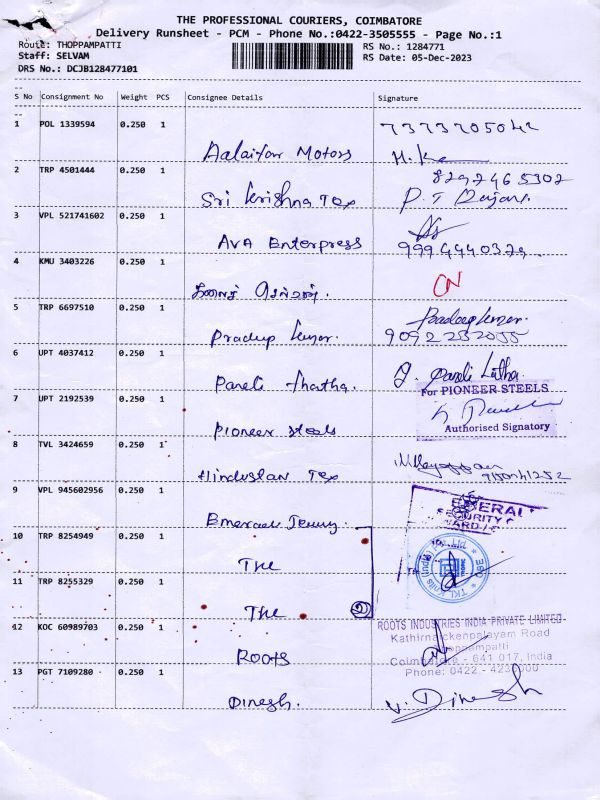 THE PROFESSIONAL COURIERS, COIMBATORE
Delivery Runsheet - PCM - Phone No.:0422-3505555 - Page No.:1
Route: THOPPAMPATTI
Staff: SELVAM
DRS No.: DCJB128477101
RS No.: 1284771
RS Date: 05-Dec-2023
S No Consignment No Weight PCS Consignee Details Signature
1 POL 1339594 0.250 1
Motors
2 TRP 4501444 0.250 1
Sri Krishna Tex
8292465302
3 VPL 521741602 0.250 1
AVA Enterpress
4 KMU 3403226 0.250 1
CN
5 TRP 6697510 0.250 1
Pradeep Kumar
Pradup Kumar.
6 UPT 4037412 0.250 1
Pareli
For PIONEER STEELS
7 UPT 2192539 0.250 1
Pioneer steels
Authorised Signatory
8 TVL 3424659 1
Hindustan Tex
9 VPL 945602956 0.250 1
SECURITY
10 TRP 8254949 0.250 1
The
11 TRP 8255329 0.250 1
The
2
12 KOC 60989703 0.250 1
ROOTS INDUSTRIES INDIA PRIVATE LIMITED
Kathirnaickenpalayam Road
Roots
Coimbatore - 641 017, India
Phone: 0422 -
13 PGT 7109280 0.250 1
Dinesh.
V. Dinesh